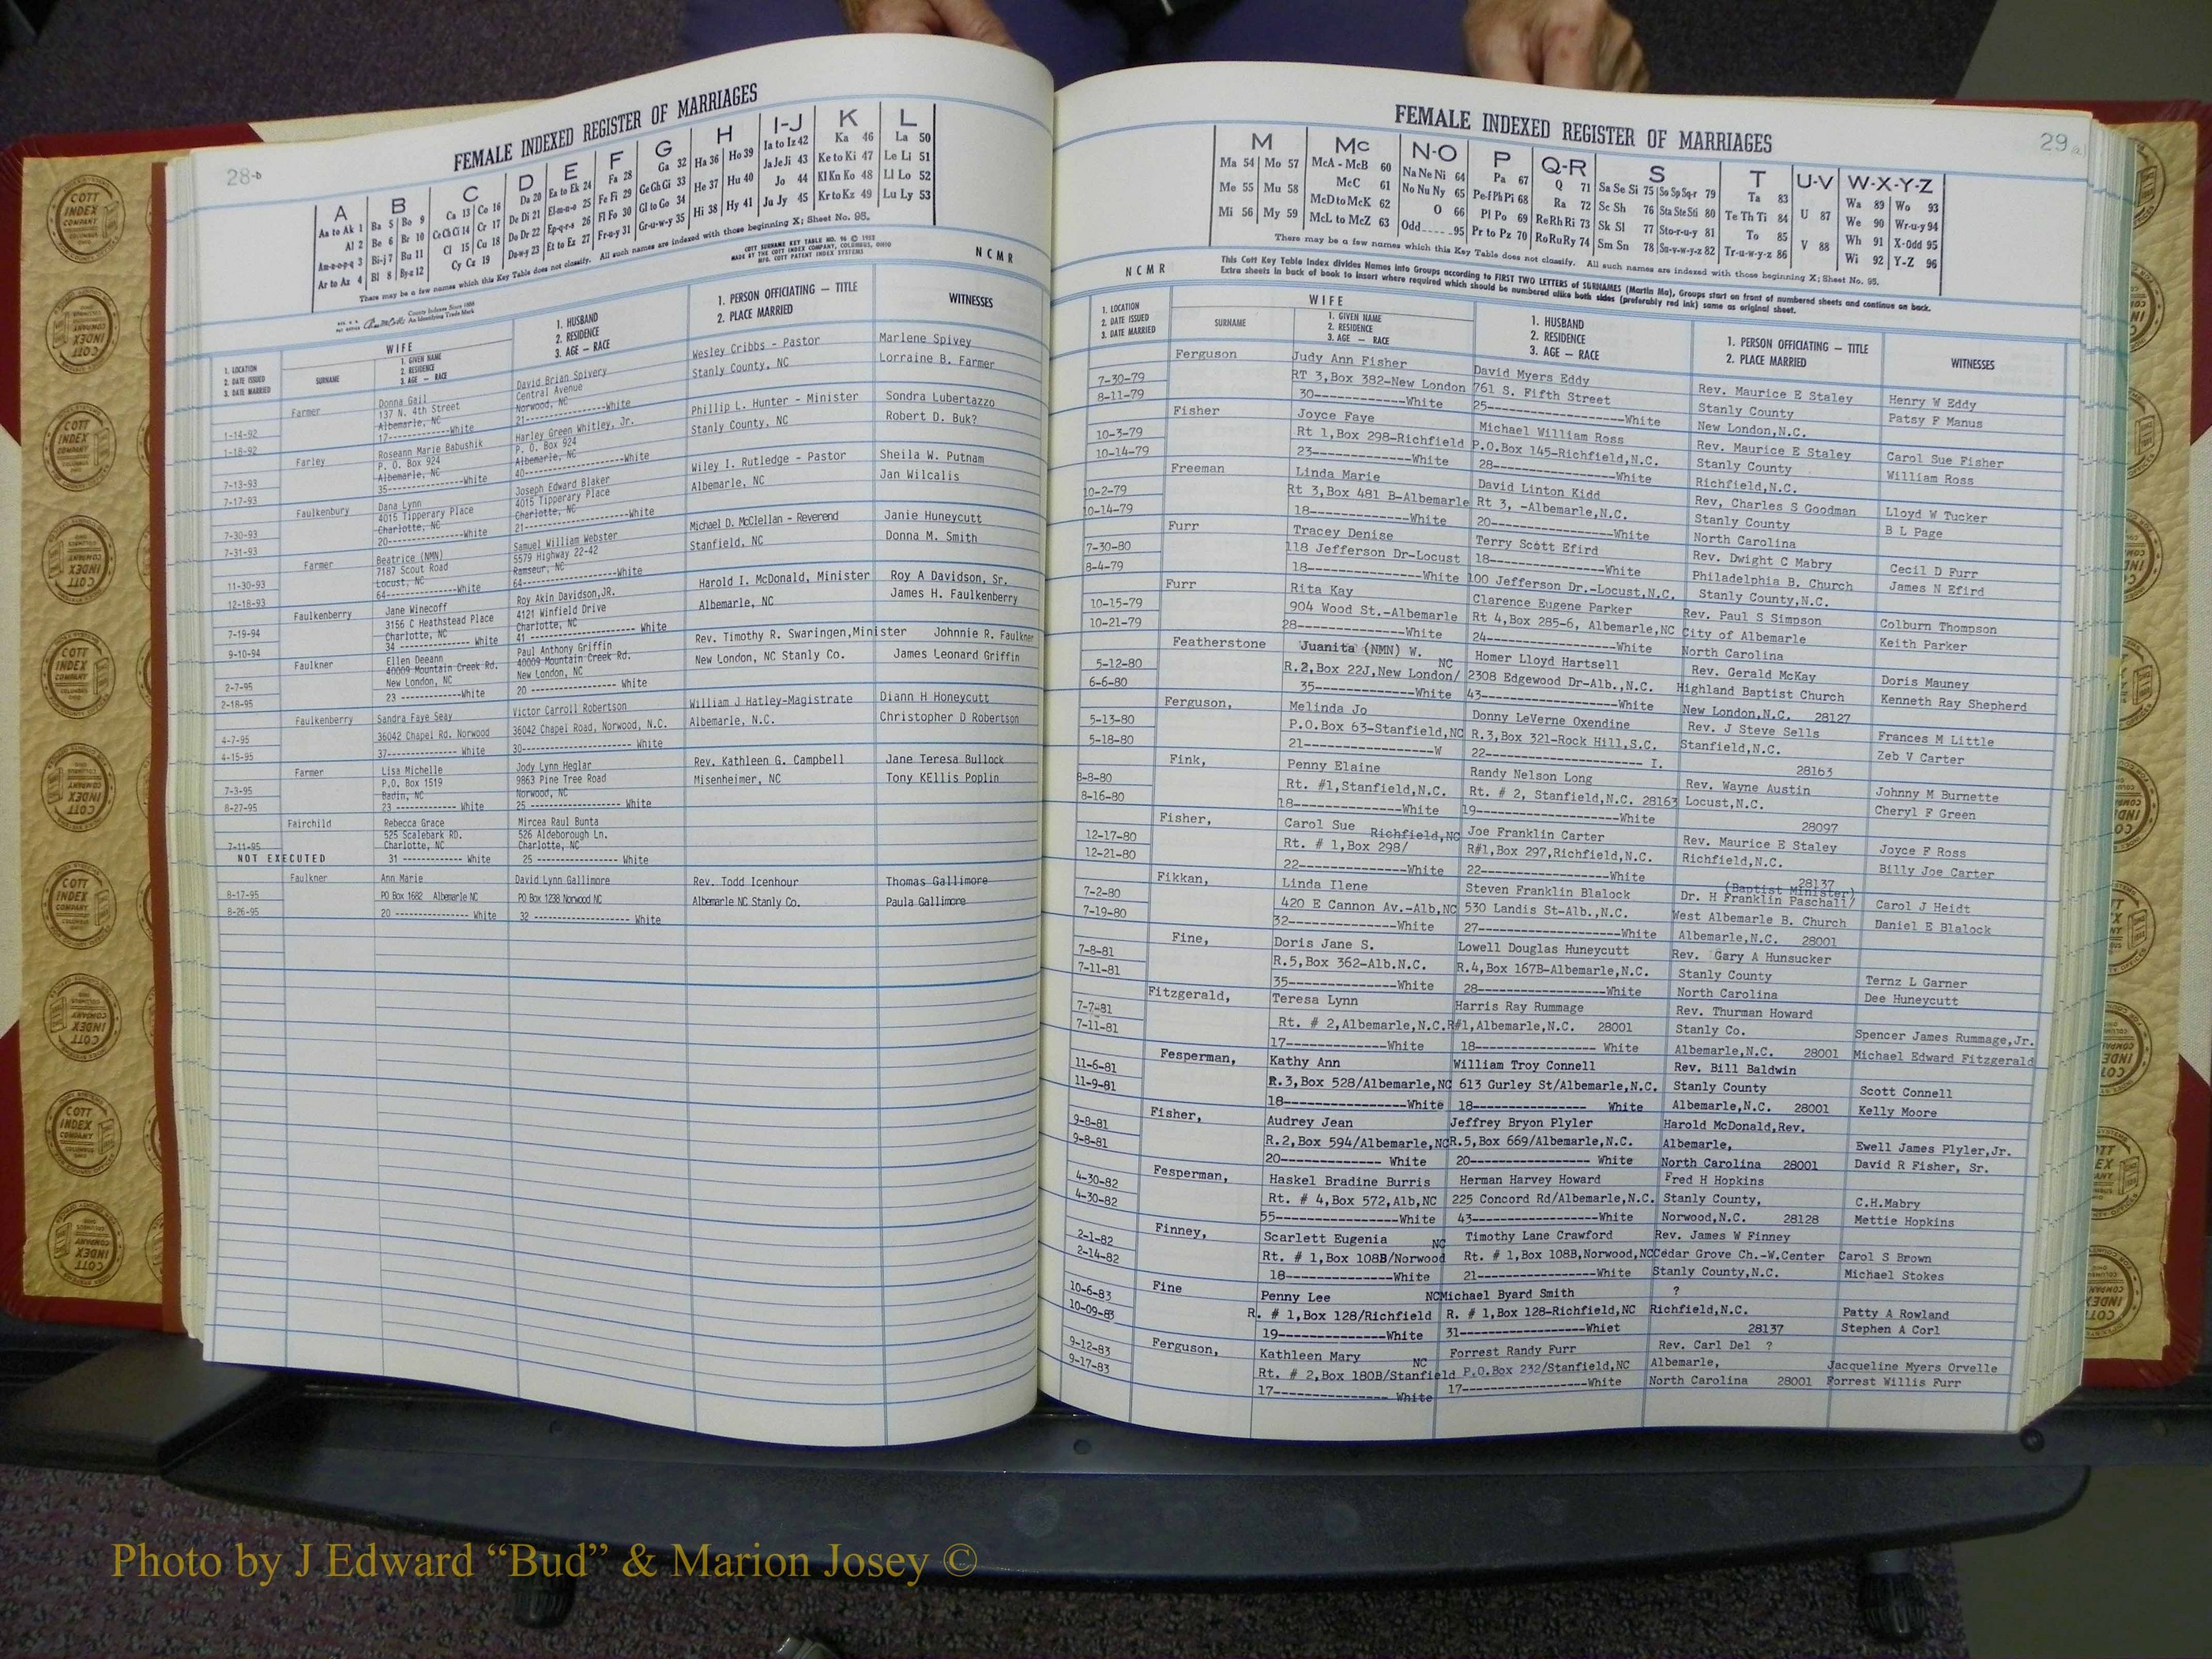 28-b
FEMALE INDEXED REGISTER OF MARRIAGES
A B C D E F G H I-J K L
Aa to Ak 1 Ba 5 Bo 9 Ca 13 Co 16 Da 20 Ea to Ek 24 Fa 28 Ga 32 Ha 36 Ho 39 Ia to Iz 42 Ka 46 La 50
Al 2 Be 6 Br 10 Ce Ch Ci 14 Cr 17 De Di 21 El-m-n-o 25 Fe Fi 29 Ge Gh Gi 33 He 37 Hu 40 Ja Je Ji 43 Ke to Ki 47 Le Li 51
Am-n-o-p-q 3 Bi-j 7 Bu 11 Cl 15 Cu 18 Do Dr 22 Ep-q-r-s 26 Fl Fo 30 Gl to Go 34 Hi 38 Hy 41 Jo 44 Kl Kn Ko 48 Ll Lo 52
Ar to Az 4 Bl 8 By-z 12 Cy Cz 19 Du-w-y 23 Et to Ez 27 Fr-u-y 31 Gr-u-w-y 35 Ju Jy 45 Kr to Kz 49 Lu Ly 53
There may be a few names which this Key Table does not classify. All such names are indexed with those beginning X; Sheet No. 95.
County Indexes Since 1888
An Identifying Trade Mark
COTT SURNAME KEY TABLE NO. 96 © 1952
MADE BY THE COTT INDEX COMPANY, COLUMBUS, OHIO
MFG. COTT PATENT INDEX SYSTEMS
NCMR
1. LOCATION
2. DATE ISSUED
3. DATE MARRIED
WIFE
SURNAME
1. GIVEN NAME
2. RESIDENCE
3. AGE — RACE
1. HUSBAND
2. RESIDENCE
3. AGE — RACE
1. PERSON OFFICIATING — TITLE
2. PLACE MARRIED
WITNESSES
Farmer Donna Gail David Brian Spivery Wesley Cribbs - Pastor Marlene Spivey
137 N. 4th Street Central Avenue Stanly County, NC Lorraine B. Farmer
1-14-92 Albemarle, NC Norwood, NC
1-18-92 17------------White 21---------------White
Farley Roseann Marie Babushik Harley Green Whitley, Jr. Phillip L. Hunter - Minister Sondra Lubertazzo
P. O. Box 924 P. O. Box 924 Stanly County, NC Robert D. Buk?
7-13-93 Albemarle, NC Albemarle, NC
7-17-93 35--------------White 40---------------White
Faulkenbury Dana Lynn Joseph Edward Blaker Wiley I. Rutledge - Pastor Sheila W. Putnam
4015 Tipperary Place 4015 Tipperary Place Albemarle, NC Jan Wilcalis
7-30-93 Charlotte, NC Charlotte, NC
7-31-93 20--------------White 21---------------White
Farmer Beatrice (NMN) Samuel William Webster Michael D. McClellan - Reverend Janie Huneycutt
7187 Scout Road 5579 Highway 22-42 Stanfield, NC Donna M. Smith
11-30-93 Locust, NC Ramseur, NC
12-18-93 64--------------White 64---------------White
Faulkenberry Jane Winecoff Roy Akin Davidson,JR. Harold I. McDonald, Minister Roy A Davidson, Sr.
3156 C Heathstead Place 4121 Winfield Drive Albemarle, NC James H. Faulkenberry
7-19-94 Charlotte, NC Charlotte, NC
9-10-94 34 -------------- White 41 ------------------- White
Faulkner Ellen Deeann Paul Anthony Griffin Rev. Timothy R. Swaringen,Minister Johnnie R. Faulkner
40009 Mountain Creek Rd. 40009 Mountain Creek Rd. New London, NC Stanly Co. James Leonard Griffin
2-7-95 New London, NC New London, NC
2-18-95 23 ------------White 20 ----------------- White
Faulkenberry Sandra Faye Seay Victor Carroll Robertson William J Hatley-Magistrate Diann H Honeycutt
4-7-95 36042 Chapel Rd. Norwood 36042 Chapel Road, Norwood, N.C. Albemarle, N.C. Christopher D Robertson
4-15-95 37------------- White 30---------------------- White
Farmer Lisa Michelle Jody Lynn Heglar Rev. Kathleen G. Campbell Jane Teresa Bullock
P.O. Box 1519 9863 Pine Tree Road Misenheimer, NC Tony KEllis Poplin
7-3-95 Badin, NC Norwood, NC
8-27-95 23 ------------ White 25 ------------------ White
Fairchild Rebecca Grace Mircea Raul Bunta
525 Scalebark RD. 526 Aldeborough Ln.
7-11-95 Charlotte, NC Charlotte, NC
NOT EXECUTED 31 ------------ White 25 ---------------- White
Faulkner Ann Marie David Lynn Gallimore Rev. Todd Icenhour Thomas Gallimore
8-17-95 PO Box 1682 Albemarle NC PO Box 1238 Norwood NC Albemarle NC Stanly Co. Paula Gallimore
8-26-95 20 -------------- White 32 ------------------ White
29
FEMALE INDEXED REGISTER OF MARRIAGES
M Mc N-O P Q-R S T U-V W-X-Y-Z
Ma 54 Mo 57 McA - McB 60 Na Ne Ni 64 Pa 67 Q 71 Sa Se Si 75 So Sp Sq-r 79 Ta 83 U 87 Wa 89 Wo 93
Me 55 Mu 58 McC 61 No Nu Ny 65 Pe-f Ph Pi 68 Ra 72 Sc Sh 76 Sta Ste Sti 80 Te Th Ti 84 V 88 We 90 Wr-u-y 94
Mi 56 My 59 McD to McK 62 O 66 Pl Po 69 Re Rh Ri 73 Sk Sl 77 Sto-r-u-y 81 To 85 Wh 91 X-Odd 95
McL to McZ 63 Odd 95 Pr to Pz 70 Ro Ru Ry 74 Sm Sn 78 Su-v-w-y-z 82 Tr-u-w-y-z 86 Wi 92 Y-Z 96
There may be a few names which this Key Table does not classify. All such names are indexed with those beginning X; Sheet No. 95.
This Cott Key Table Index divides Names into Groups according to FIRST TWO LETTERS of SURNAMES (Martin Ma), Groups start on front of numbered sheets and continue on back.
Extra sheets in back of book to insert where required which should be numbered alike both sides (preferably red ink) same as original sheet.
NCMR
1. LOCATION
2. DATE ISSUED
3. DATE MARRIED
WIFE
SURNAME
1. GIVEN NAME
2. RESIDENCE
3. AGE — RACE
1. HUSBAND
2. RESIDENCE
3. AGE — RACE
1. PERSON OFFICIATING — TITLE
2. PLACE MARRIED
WITNESSES
Ferguson Judy Ann Fisher David Myers Eddy Rev. Maurice E Staley Henry W Eddy
7-30-79 RT 3,Box 382-New London 761 S. Fifth Street Stanly County Patsy F Manus
8-11-79 30------------White 25-----------------White New London,N.C.
Fisher Joyce Faye Michael William Ross Rev. Maurice E Staley Carol Sue Fisher
10-3-79 Rt 1,Box 298-Richfield P.O.Box 145-Richfield,N.C. Stanly County William Ross
10-14-79 23------------White 28----------------White Richfield,N.C.
Freeman Linda Marie David Linton Kidd Rev, Charles S Goodman Lloyd W Tucker
10-2-79 Rt 3,Box 481 B-Albemarle Rt 3, -Albemarle,N.C. Stanly County B L Page
10-14-79 18-------------White 20----------------White North Carolina
Furr Tracey Denise Terry Scott Efird Rev. Dwight C Mabry Cecil D Furr
7-30-80 118 Jefferson Dr-Locust 18---------------White Philadelphia B. Church James N Efird
8-4-79 18--------------White 100 Jefferson Dr.-Locust,N.C. Stanly County,N.C.
Furr Rita Kay Clarence Eugene Parker Rev. Paul S Simpson Colburn Thompson
10-15-79 904 Wood St.-Albemarle Rt 4,Box 285-6, Albemarle,NC City of Albemarle Keith Parker
10-21-79 28---------------White 24-----------------White North Carolina
Featherstone Juanita (NMN) W. Homer Lloyd Hartsell Rev. Gerald McKay Doris Mauney
5-12-80 R.2,Box 22J,New London/ NC 2308 Edgewood Dr-Alb.,N.C. Highland Baptist Church Kenneth Ray Shepherd
6-6-80 35--------------White 43-----------------White New London,N.C. 28127
Ferguson, Melinda Jo Donny LeVerne Oxendine Rev. J Steve Sells Frances M Little
5-13-80 P.O.Box 63-Stanfield,NC R.3,Box 321-Rock Hill,S.C. Stanfield,N.C. Zeb V Carter
5-18-80 21---------------W 22------------------- I. 28163
Fink, Penny Elaine Randy Nelson Long Rev. Wayne Austin Johnny M Burnette
8-8-80 Rt. #1,Stanfield,N.C. Rt. # 2, Stanfield,N.C. 28163 Locust,N.C. Cheryl F Green
8-16-80 18--------------White 19----------------White 28097
Fisher, Carol Sue Joe Franklin Carter Rev. Maurice E Staley Joyce F Ross
12-17-80 Rt. # 1,Box 298/ Richfield,NC R#1,Box 297,Richfield,N.C. Richfield,N.C. Billy Joe Carter
12-21-80 22--------------White 22---------------White 28137
Fikkan, Linda Ilene Steven Franklin Blalock Dr. H Franklin Paschall/ (Baptist Minister) Carol J Heidt
7-2-80 420 E Cannon Av.-Alb,NC 530 Landis St-Alb.,N.C. West Albemarle B. Church Daniel E Blalock
7-19-80 32---------------White 27-----------------White Albemarle,N.C. 28001
Fine, Doris Jane S. Lowell Douglas Huneycutt Rev. Gary A Hunsucker Ternz L Garner
7-8-81 R.5,Box 362-Alb.N.C. R.4,Box 167B-Albemarle,N.C. Stanly County Dee Huneycutt
7-11-81 35------------White 28---------------White North Carolina
Fitzgerald, Teresa Lynn Harris Ray Rummage Rev. Thurman Howard Spencer James Rummage,Jr.
7-7-81 Rt. # 2,Albemarle,N.C. R#1,Albemarle,N.C. 28001 Stanly Co. Michael Edward Fitzgerald
7-11-81 17-------------White 18-------------- White Albemarle,N.C. 28001
Fesperman, Kathy Ann William Troy Connell Rev. Bill Baldwin Scott Connell
11-6-81 R.3,Box 528/Albemarle,NC 613 Gurley St/Albemarle,N.C. Stanly County Kelly Moore
11-9-81 18---------------White 18-------------- White Albemarle,N.C. 28001
Fisher, Audrey Jean Jeffrey Bryon Plyler Harold McDonald,Rev. Ewell James Plyler,Jr.
9-8-81 R.2,Box 594/Albemarle,NC R.5,Box 669/Albemarle,N.C. Albemarle, David R Fisher, Sr.
9-8-81 20------------- White 20-------------- White North Carolina 28001
Fesperman, Haskel Bradine Burris Herman Harvey Howard Fred H Hopkins C.H.Mabry
4-30-82 Rt. # 4,Box 572,Alb,NC 225 Concord Rd/Albemarle,N.C. Stanly County, Mettie Hopkins
4-30-82 55----------------White 43----------------White Norwood,N.C. 28128
Finney, Scarlett Eugenia Timothy Lane Crawford Rev. James W Finney Carol S Brown
2-1-82 Rt. # 1,Box 108B/Norwood NC Rt. # 1,Box 108B,Norwood,NC Cedar Grove Ch.-W.Center Michael Stokes
2-14-82 18---------------White 21---------------White Stanly County,N.C.
Fine Penny Lee Michael Byard Smith ? Patty A Rowland
10-6-83 R. # 1,Box 128/Richfield NC R. # 1,Box 128-Richfield,NC Richfield,N.C. Stephen A Corl
10-09-83 19---------------White 31----------------Whiet 28137
Ferguson, Kathleen Mary Forrest Randy Furr Rev. Carl Del ? Jacqueline Myers Orvelle
9-12-83 Rt. # 2,Box 180B/Stanfield NC P.O.Box 232/Stanfield,NC Albemarle, Forrest Willis Furr
9-17-83 17--------------- White 17----------------White North Carolina 28001
Photo by J Edward “Bud” & Marion Josey ©